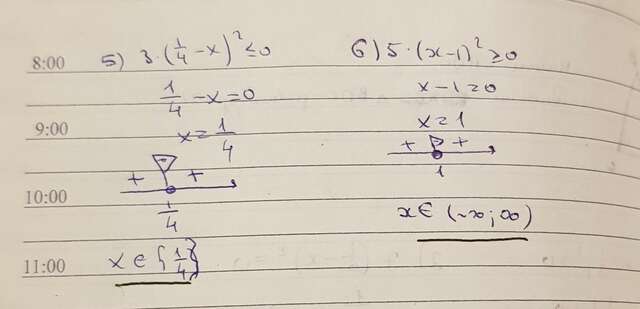 8:00
5) 3·(1/4 - x)² ≤ 0
1/4 - x = 0
9:00
x = 1/4
+ - +
10:00
1/4
x ∈ {1/4}
11:00
6) 5·(x-1)² ≥ 0
x - 1 = 0
x = 1
+ - +
1
x ∈ (-∞; ∞)